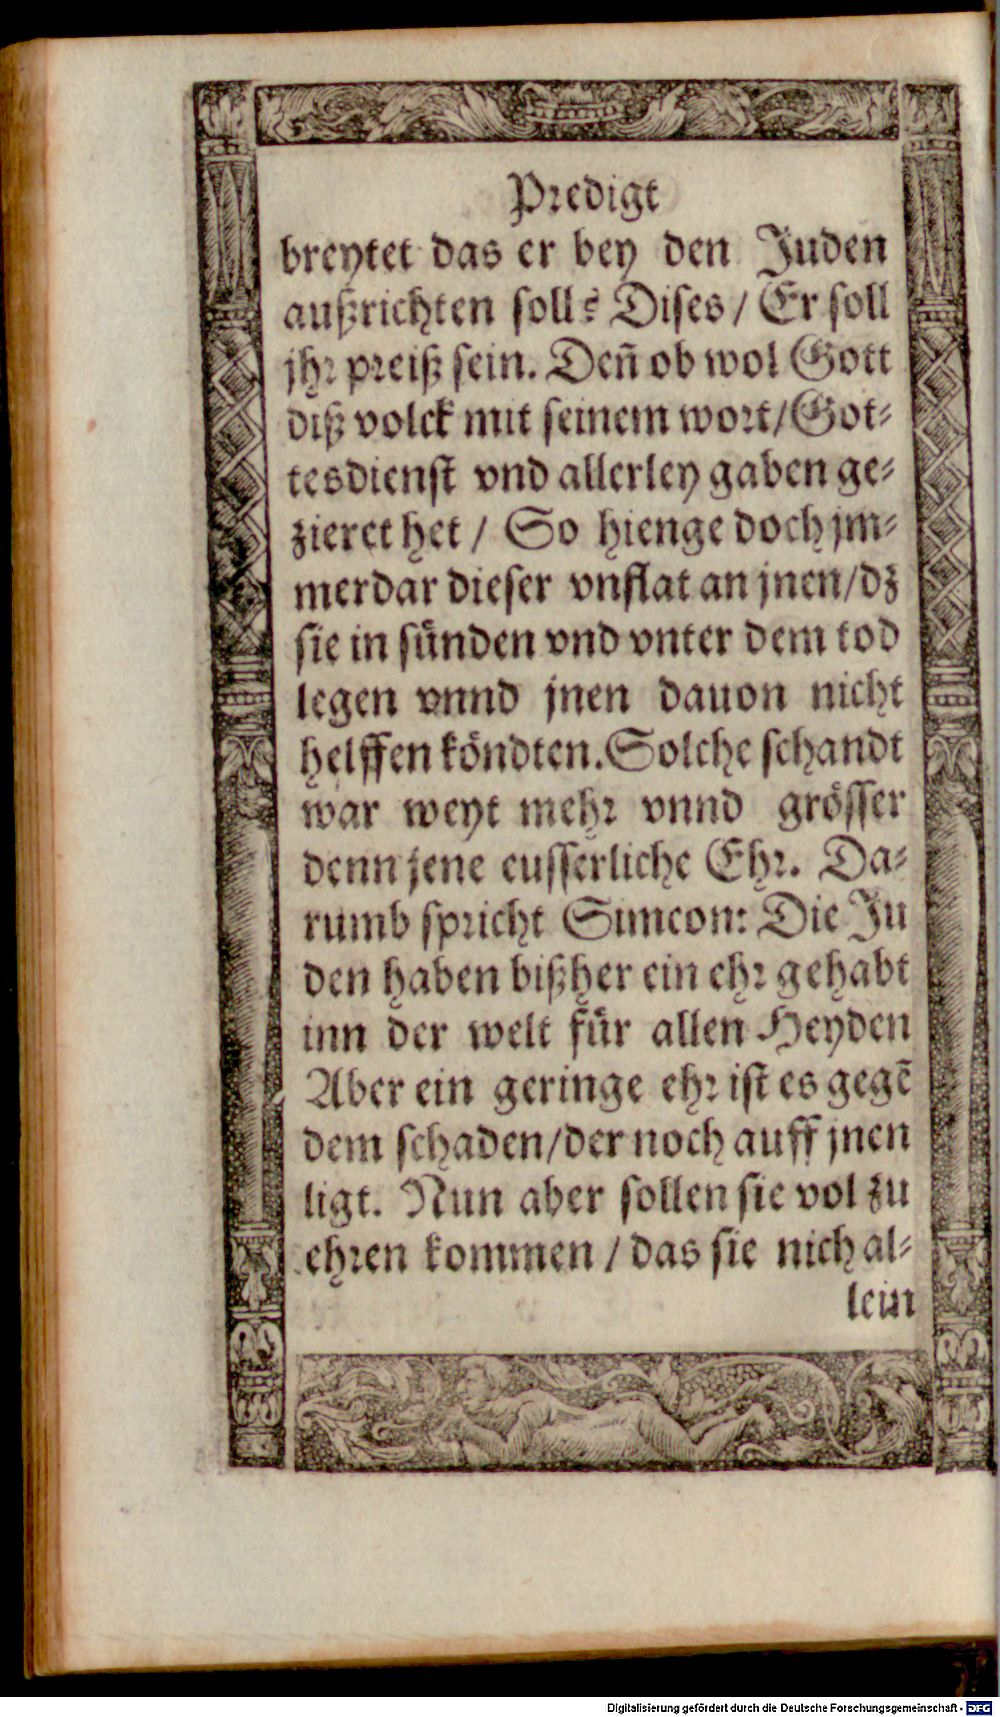 Predigt
breytet das er bey den Juden
außrichten soll? Dises / Er soll
jhr preiß sein. Den̄ ob wol Gott
diß volck mit seinem wort / Got⸗
tesdienst vnd allerley gaben ge⸗
zieret het / So hienge doch jm⸗
merdar dieser vnflat an jnen / dz
sie in sünden vnd vnter dem tod
legen vnnd jnen dauon nicht
helffen köndten. Solche schandt
war weyt mehr vnnd grösser
denn jene eusserliche Ehr. Da⸗
rumb spricht Simeon: Die Ju
den haben bißher ein ehr gehabt
inn der welt für allen Heyden
Aber ein geringe ehr ist es gegē
dem schaden / der noch auff jnen
ligt. Nun aber sollen sie vol zu
ehren kommen / das sie nich al⸗
lein
Digitalisierung gefördert durch die Deutsche Forschungsgemeinschaft - DFG